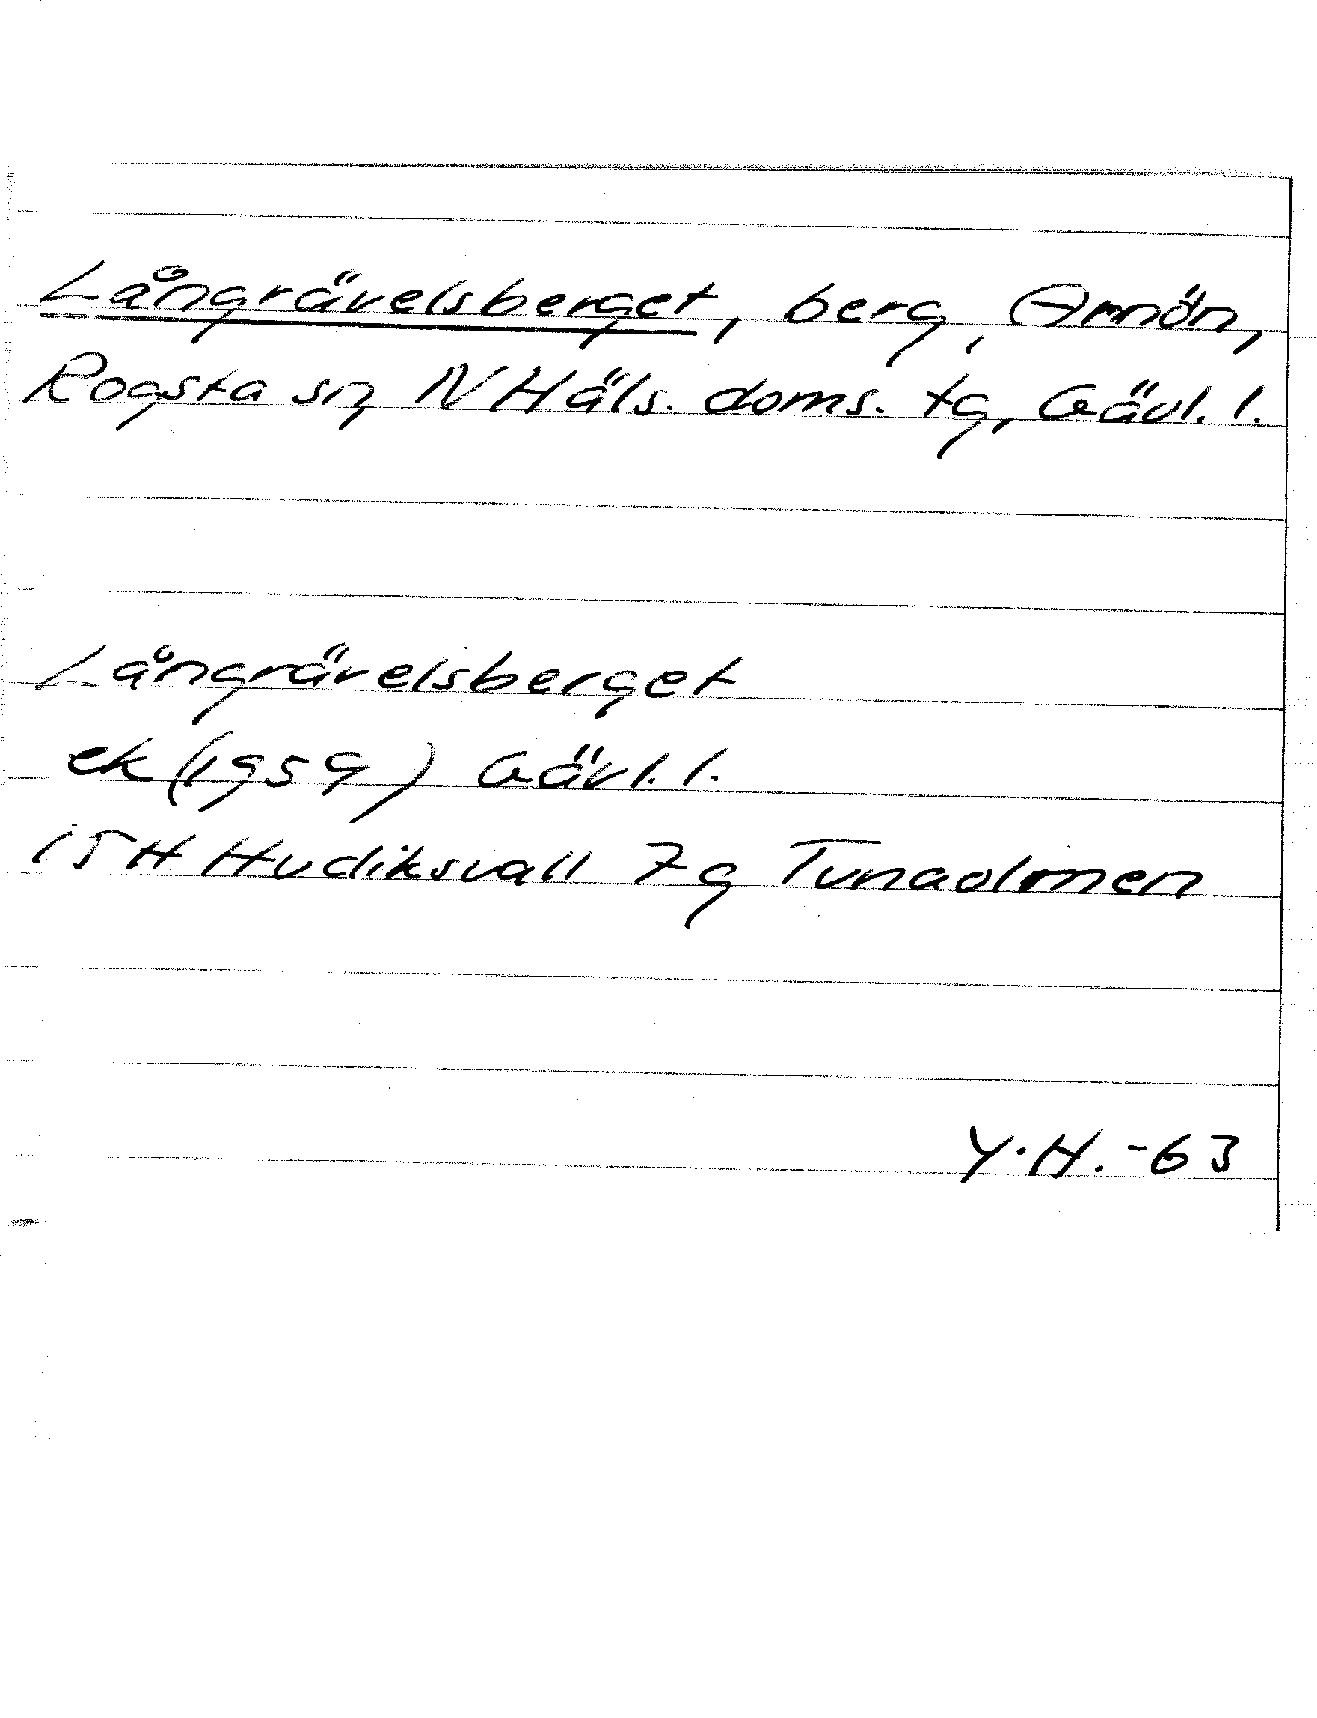 Långrävelsberget, berg, Arnön,
Rogsta sn, N Häls. doms. tg, Gävl. l.
Långrävelsberget
ek (1959) Gävl. l.
15H Hudiksvall 7g Tunaolmen
Y.H.-63